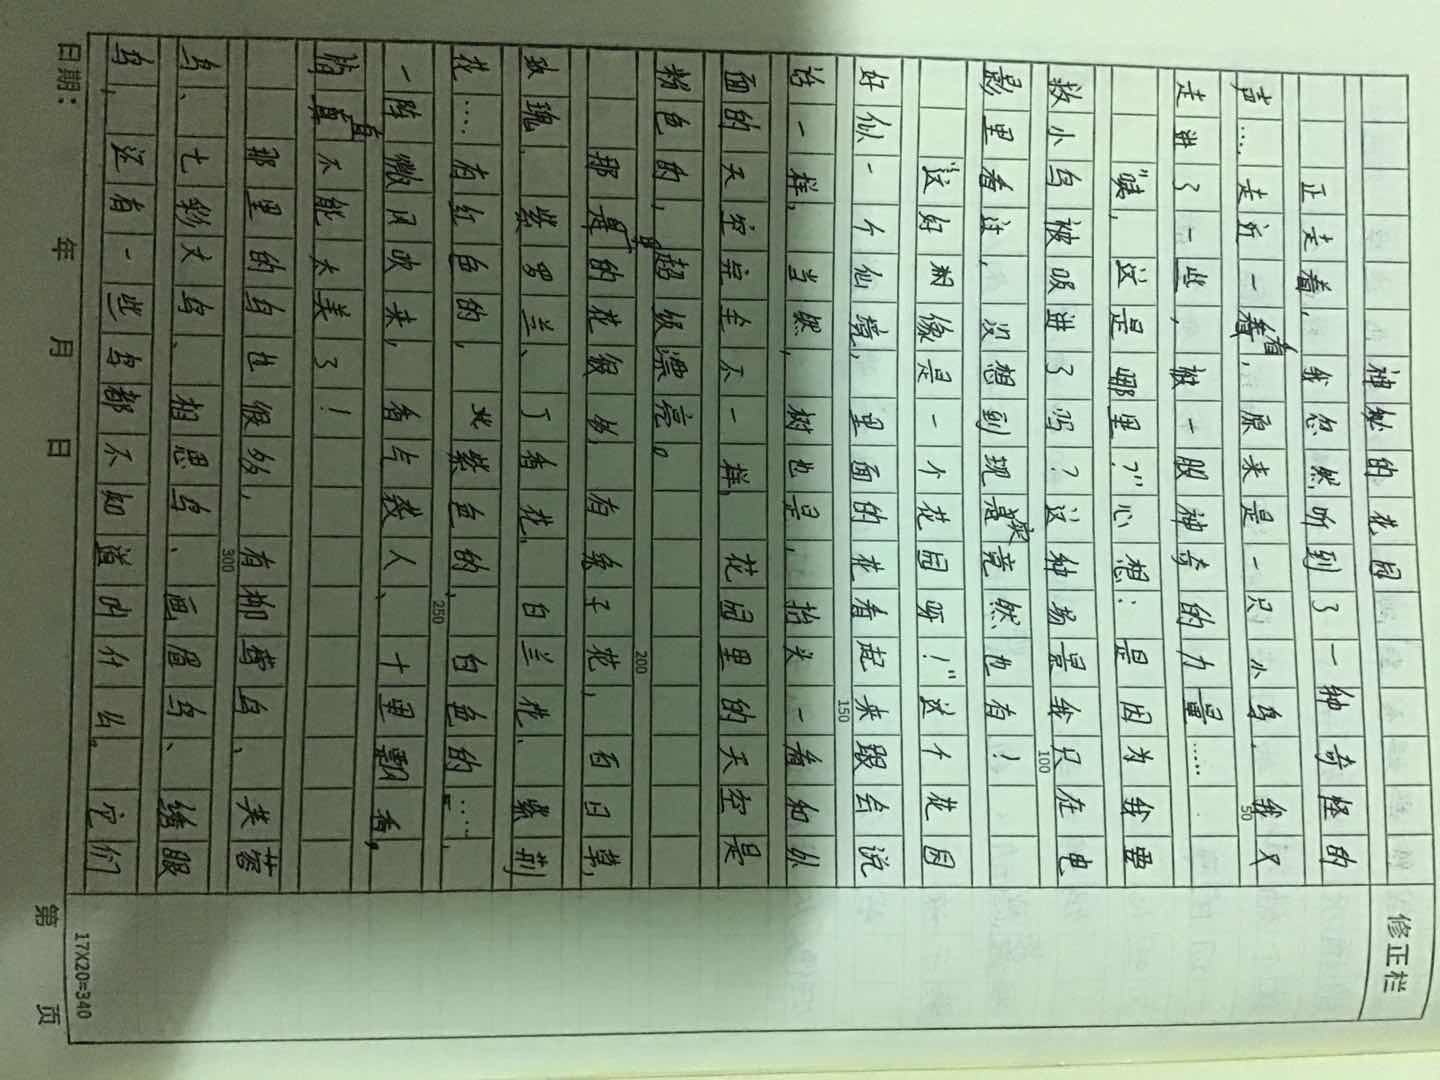 修正栏
神秘的花园
正走着，我忽然听到了一种奇怪的
声…，走近一看，原来是一只小鸟，我又
走进了一些，被一股神奇的力量……
"咦，这是哪里？"心想：是因为我要
救小鸟被吸进了吗？这种场景我只在电
影里看过，没想到现实竟然也有！
"这好相像是一个花园呀！"这个花园
好似一个仙境，里面的花看起来跟会说
话一样，当然，树也是，抬头一看和外
面的天空完全不一样，花园里的天空是
粉色的，超级漂亮。
那里的花很多，有桑子花，百日草，
玫瑰、紫罗兰、丁香花、白兰花、紫荆
花…有红色的，紫色的，白色的…，
一阵微风吹来，香占袭人、十里飘香，
简直不能太美了！
那里的鸟也很多，有柳莺鸟、芙蓉
鸟、七彩文鸟、相思鸟、画眉鸟、绣眼
鸟，还有一些鸟都不知道叫什么。它们
50
100
150
200
250
300
日期： 年 月 日
第 页
17X20=340